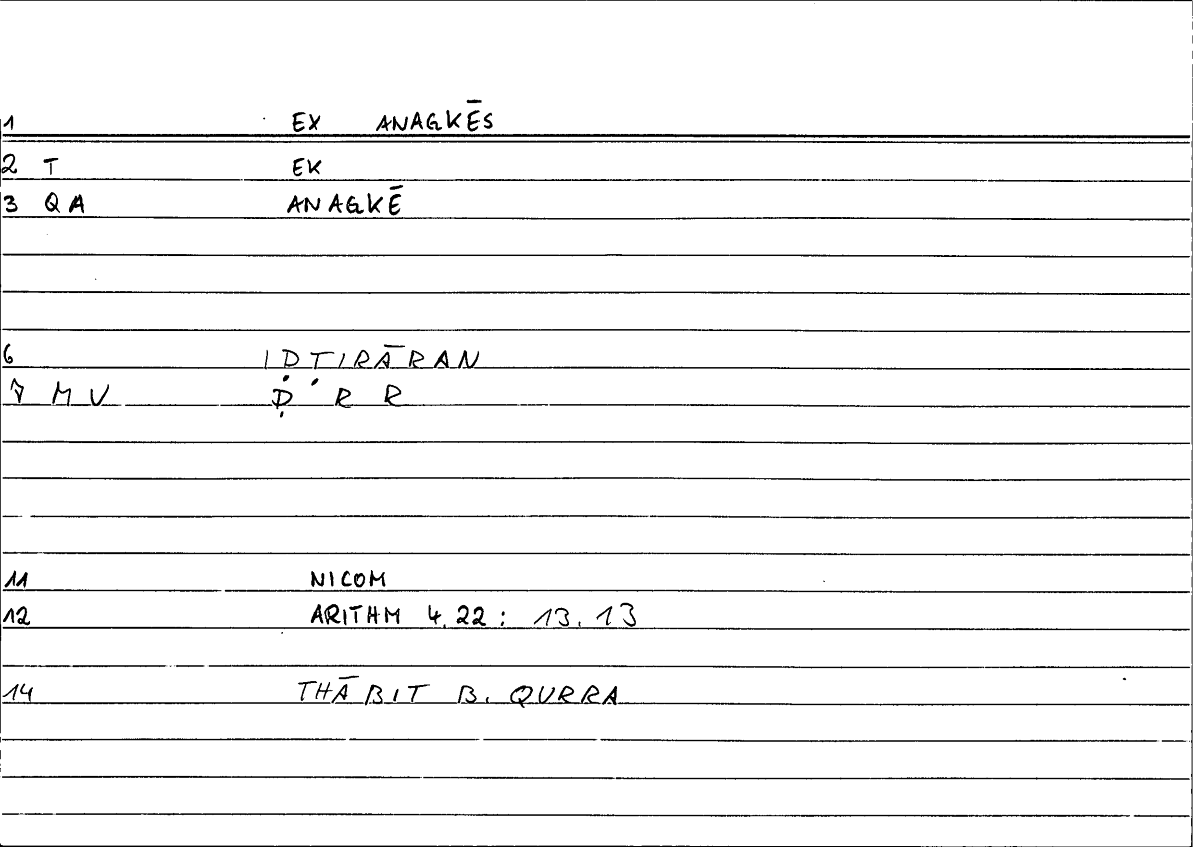 1 EX ANAGKĒS
2 T EK
3 QA ANAGKĒ
6 IḌṬIRĀRAN
7 MV Ḍ R R
11 NICOM
12 ARITHM 4.22: 13.13
14 THĀBIT B. QURRA